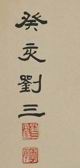 癸亥劉三